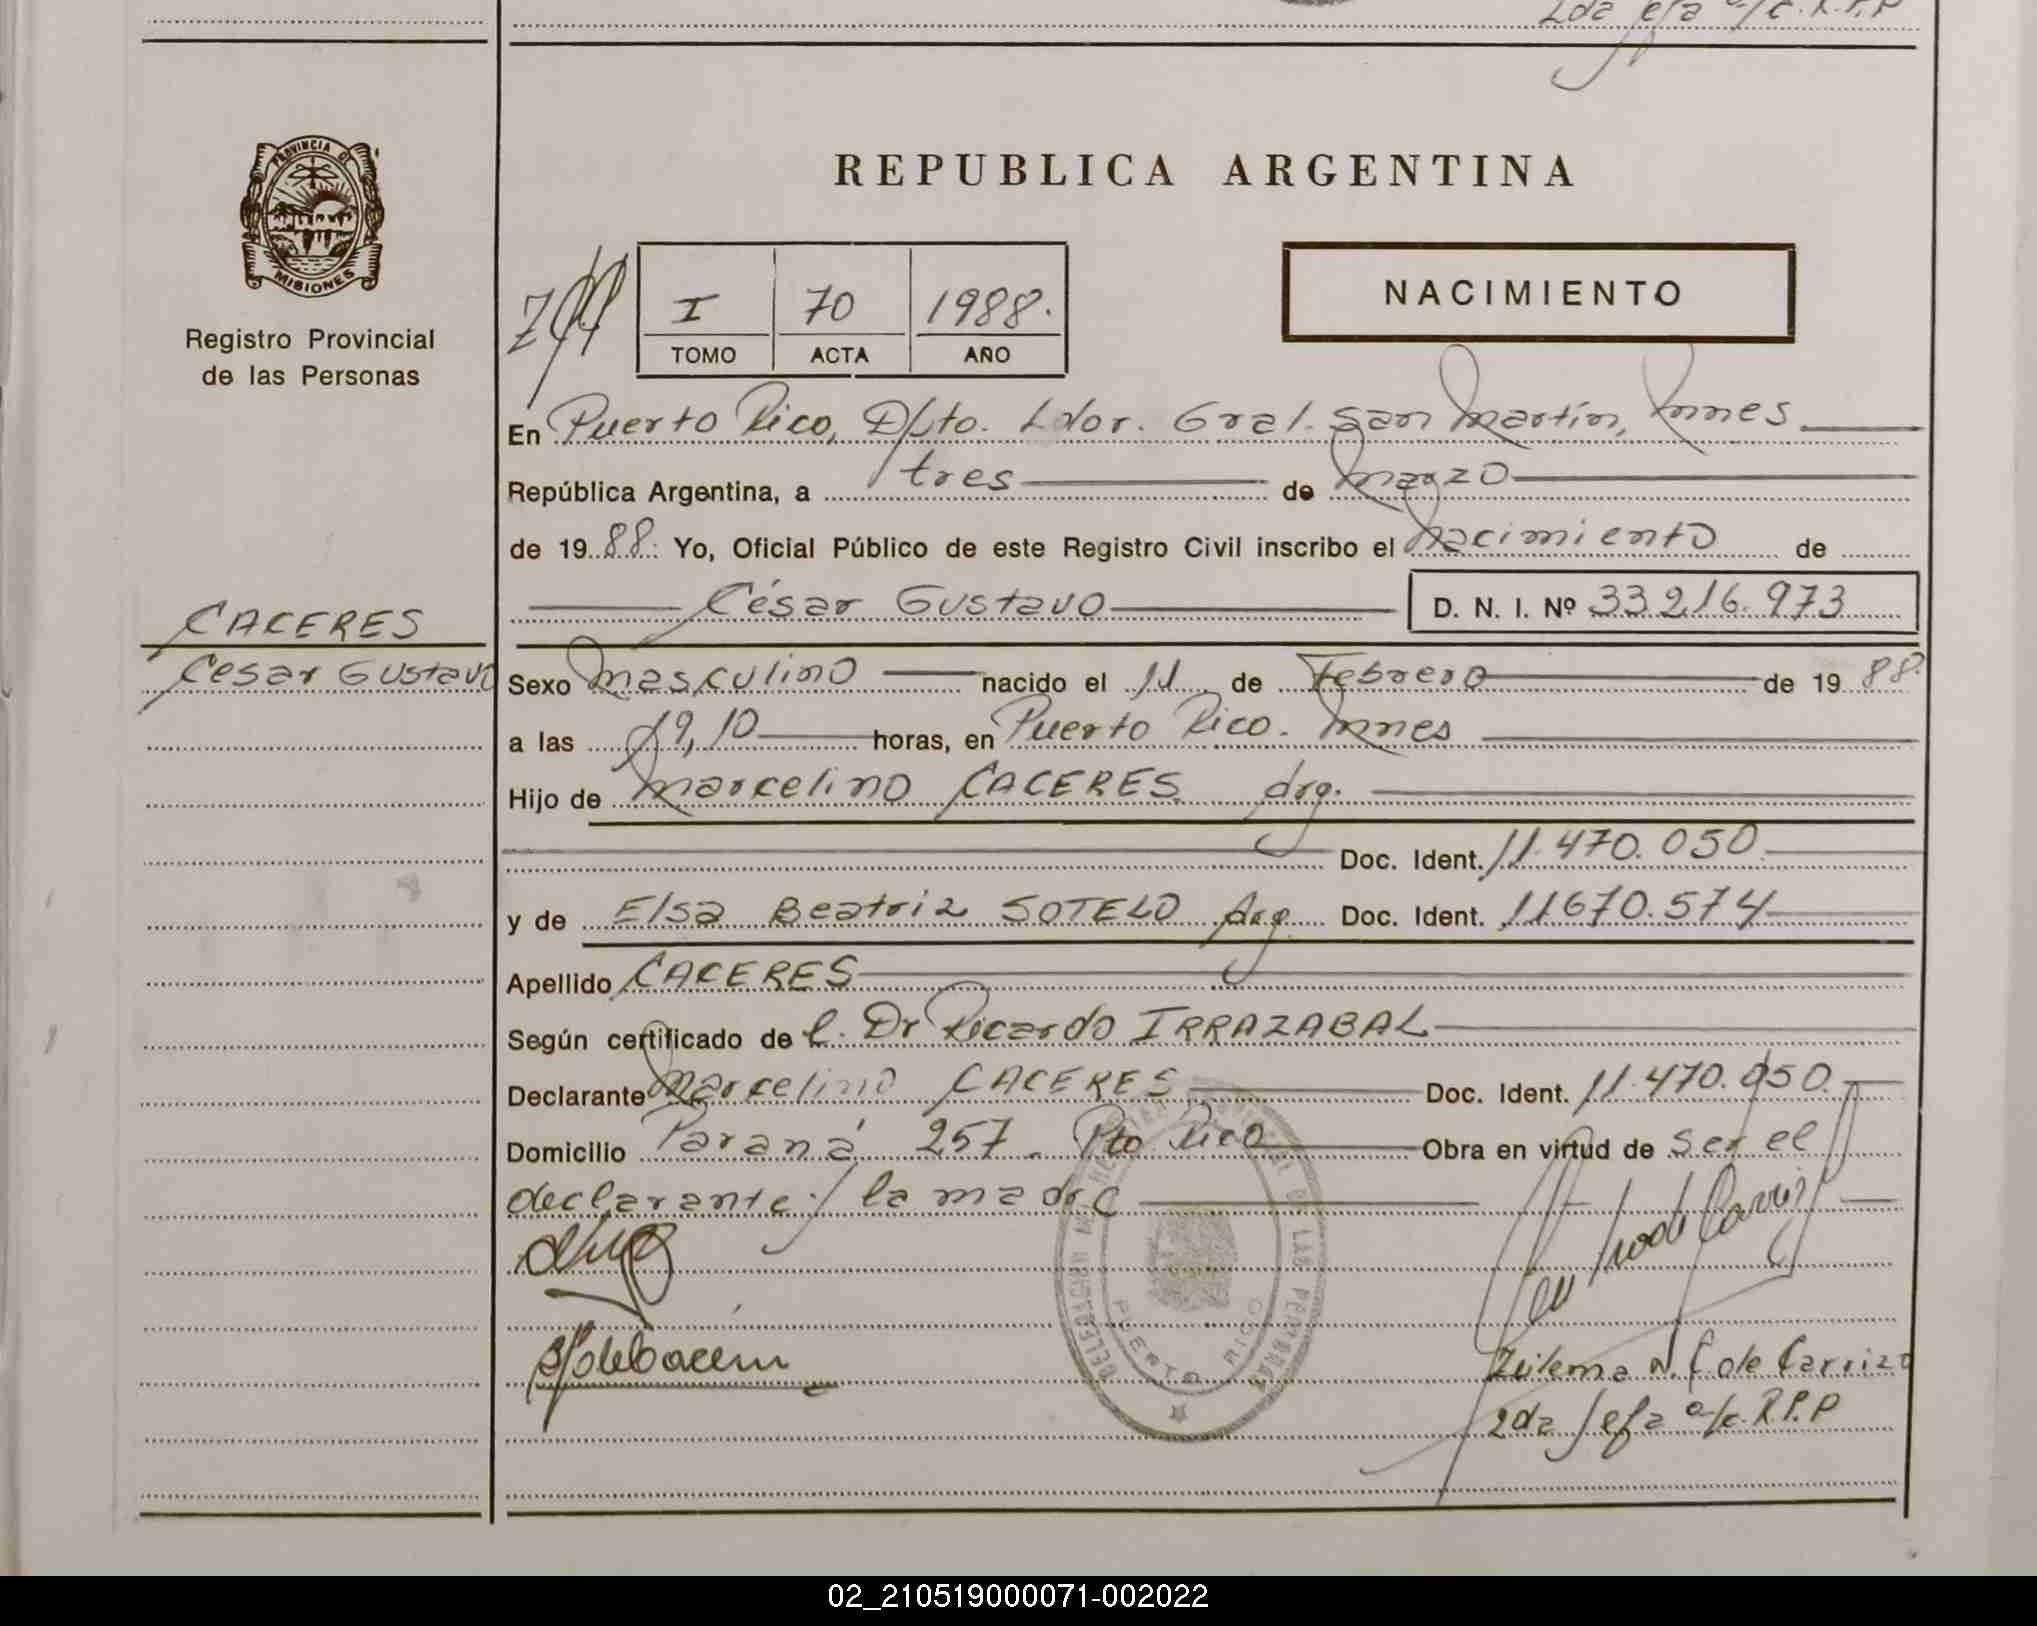 2da Jefa a/c. R.P.P
PROVINCIA DE
MISIONES
Registro Provincial
de las Personas
REPUBLICA ARGENTINA
NACIMIENTO
I 70 1988.
TOMO ACTA AÑO
En Puerto Rico, Dpto. Ldor. Gral. San Martín, Mnes
República Argentina, a tres de Marzo
de 1988: Yo, Oficial Público de este Registro Civil inscribo el Nacimiento de
César Gustavo D. N. I. Nº 33.216.973
CACERES
César Gustavo
Sexo Masculino nacido el 11 de Febrero de 1988.
a las 19,10 horas, en Puerto Rico. Mnes
Hijo de Marcelino CACERES arg.
Doc. Ident. 11.470.050
y de Elsa Beatriz SOTELO Arg. Doc. Ident. 11670.574
Apellido CACERES
Según certificado de l. Dr Ricardo IRRAZABAL
Declarante Marcelino CACERES Doc. Ident. 11.470.050.
Domicilio Paraná 257. Pto Rico Obra en virtud de ser el
declarante y la madre
DELEGACION DEL REGISTRO PROVINCIAL DE LAS PERSONAS
PUERTO RICO
Zulema N. F. de Carrizo
2da Jefa a/c. R.P.P
02_210519000071-002022